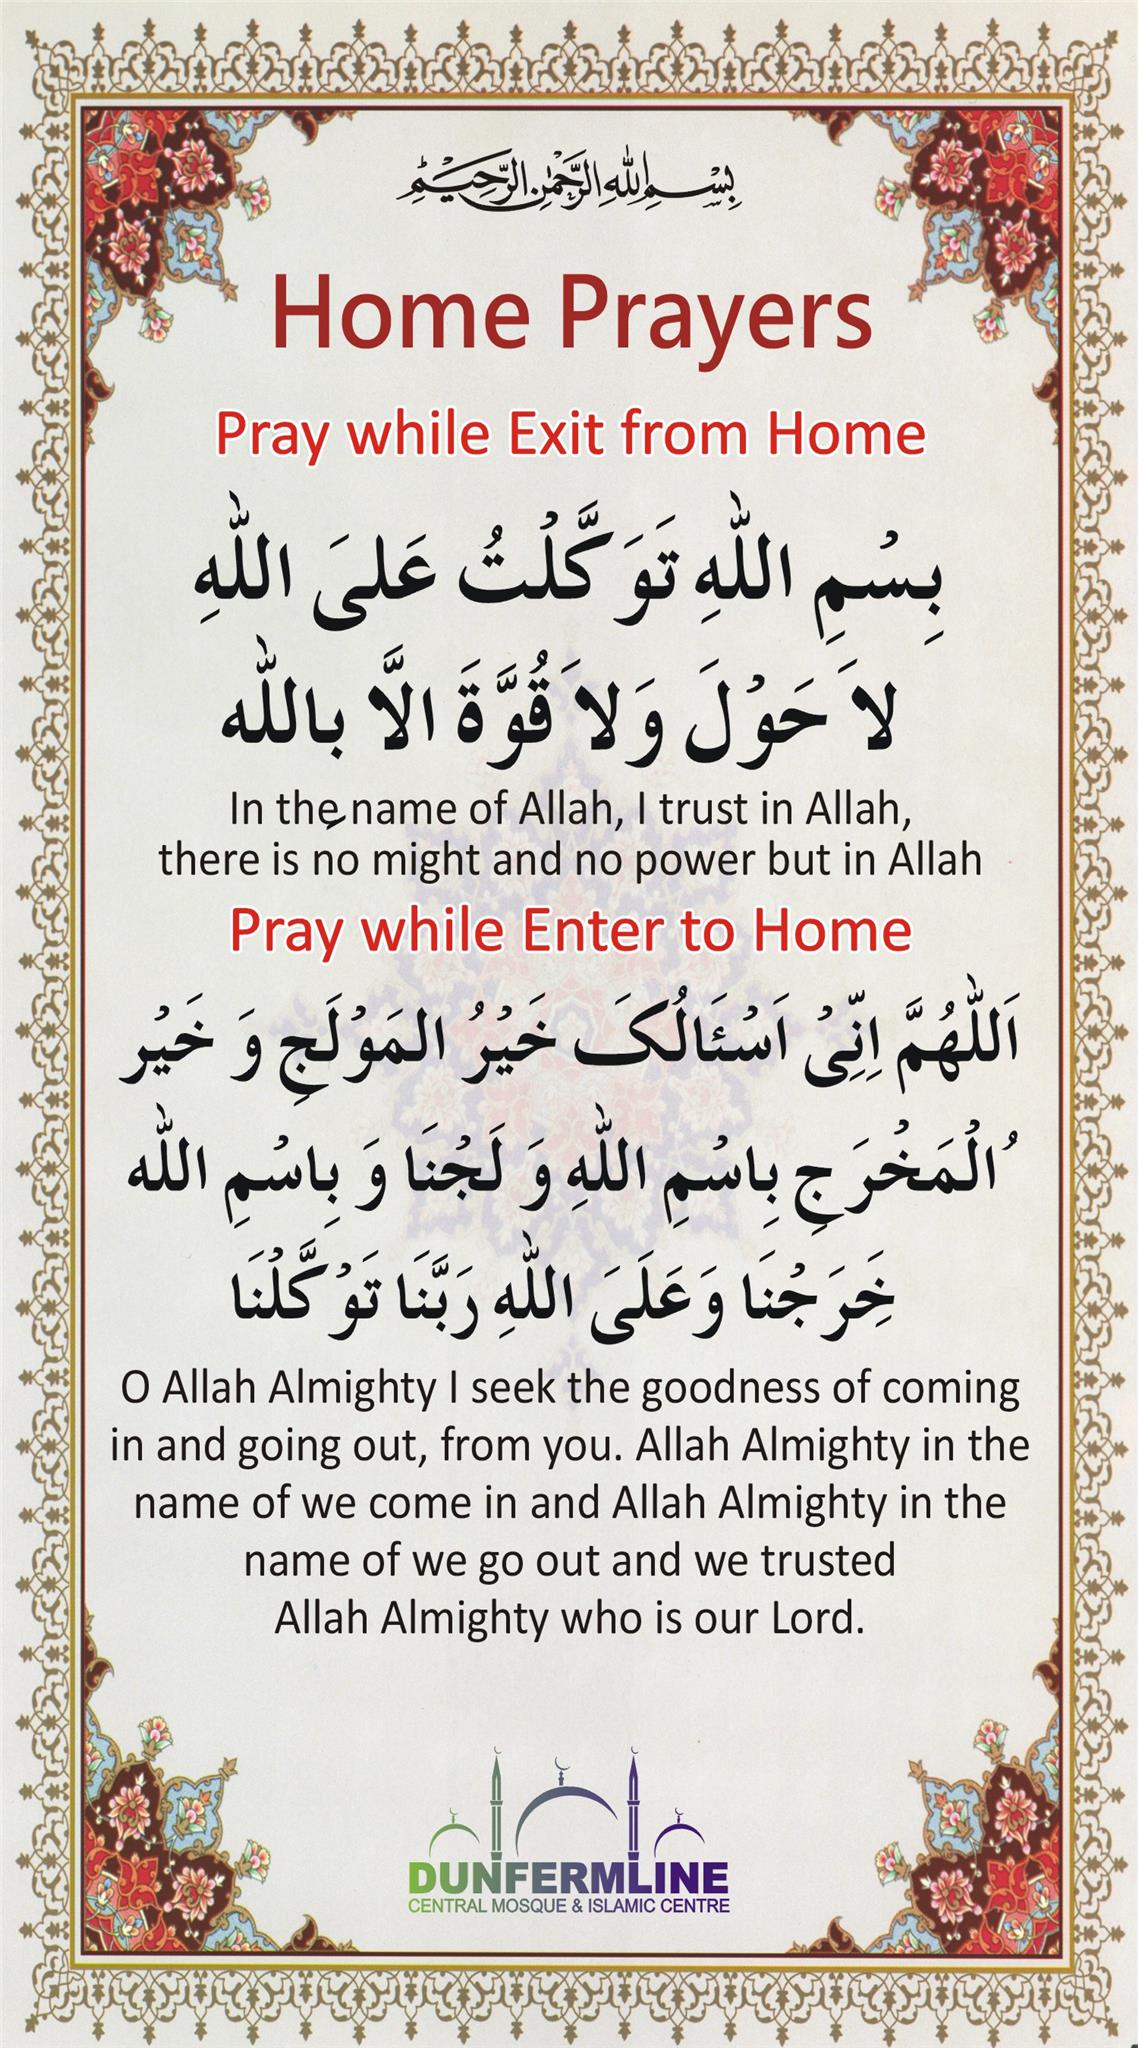 بِسْمِ اللهِ الرَّحْمٰنِ الرَّحِيْمِ
Home Prayers
Pray while Exit from Home
بِسْمِ اللّٰهِ تَوَكَّلْتُ عَلىَ اللّٰهِ
لاَ حَوْلَ وَلاَ قُوَّةَ الَّا بِاللّٰه
In the name of Allah, I trust in Allah,
there is no might and no power but in Allah
Pray while Enter to Home
اَللّٰهُمَّ اِنِّیْ اَسْئَالُکَ خَيْرُ المَوْلَجِ وَ خَيْر
ُالْمَخْرَجِ بِاسْمِ اللّٰهِ وَ لَجْنَا وَ بِاسْمِ اللّٰه
خَِرَجْنَا وَعَلَىَ اللّٰهِ رَبَّنَا تَوْكَّلْنَا
O Allah Almighty I seek the goodness of coming
in and going out, from you. Allah Almighty in the
name of we come in and Allah Almighty in the
name of we go out and we trusted
Allah Almighty who is our Lord.
DUNFERMLINE
CENTRAL MOSQUE & ISLAMIC CENTRE